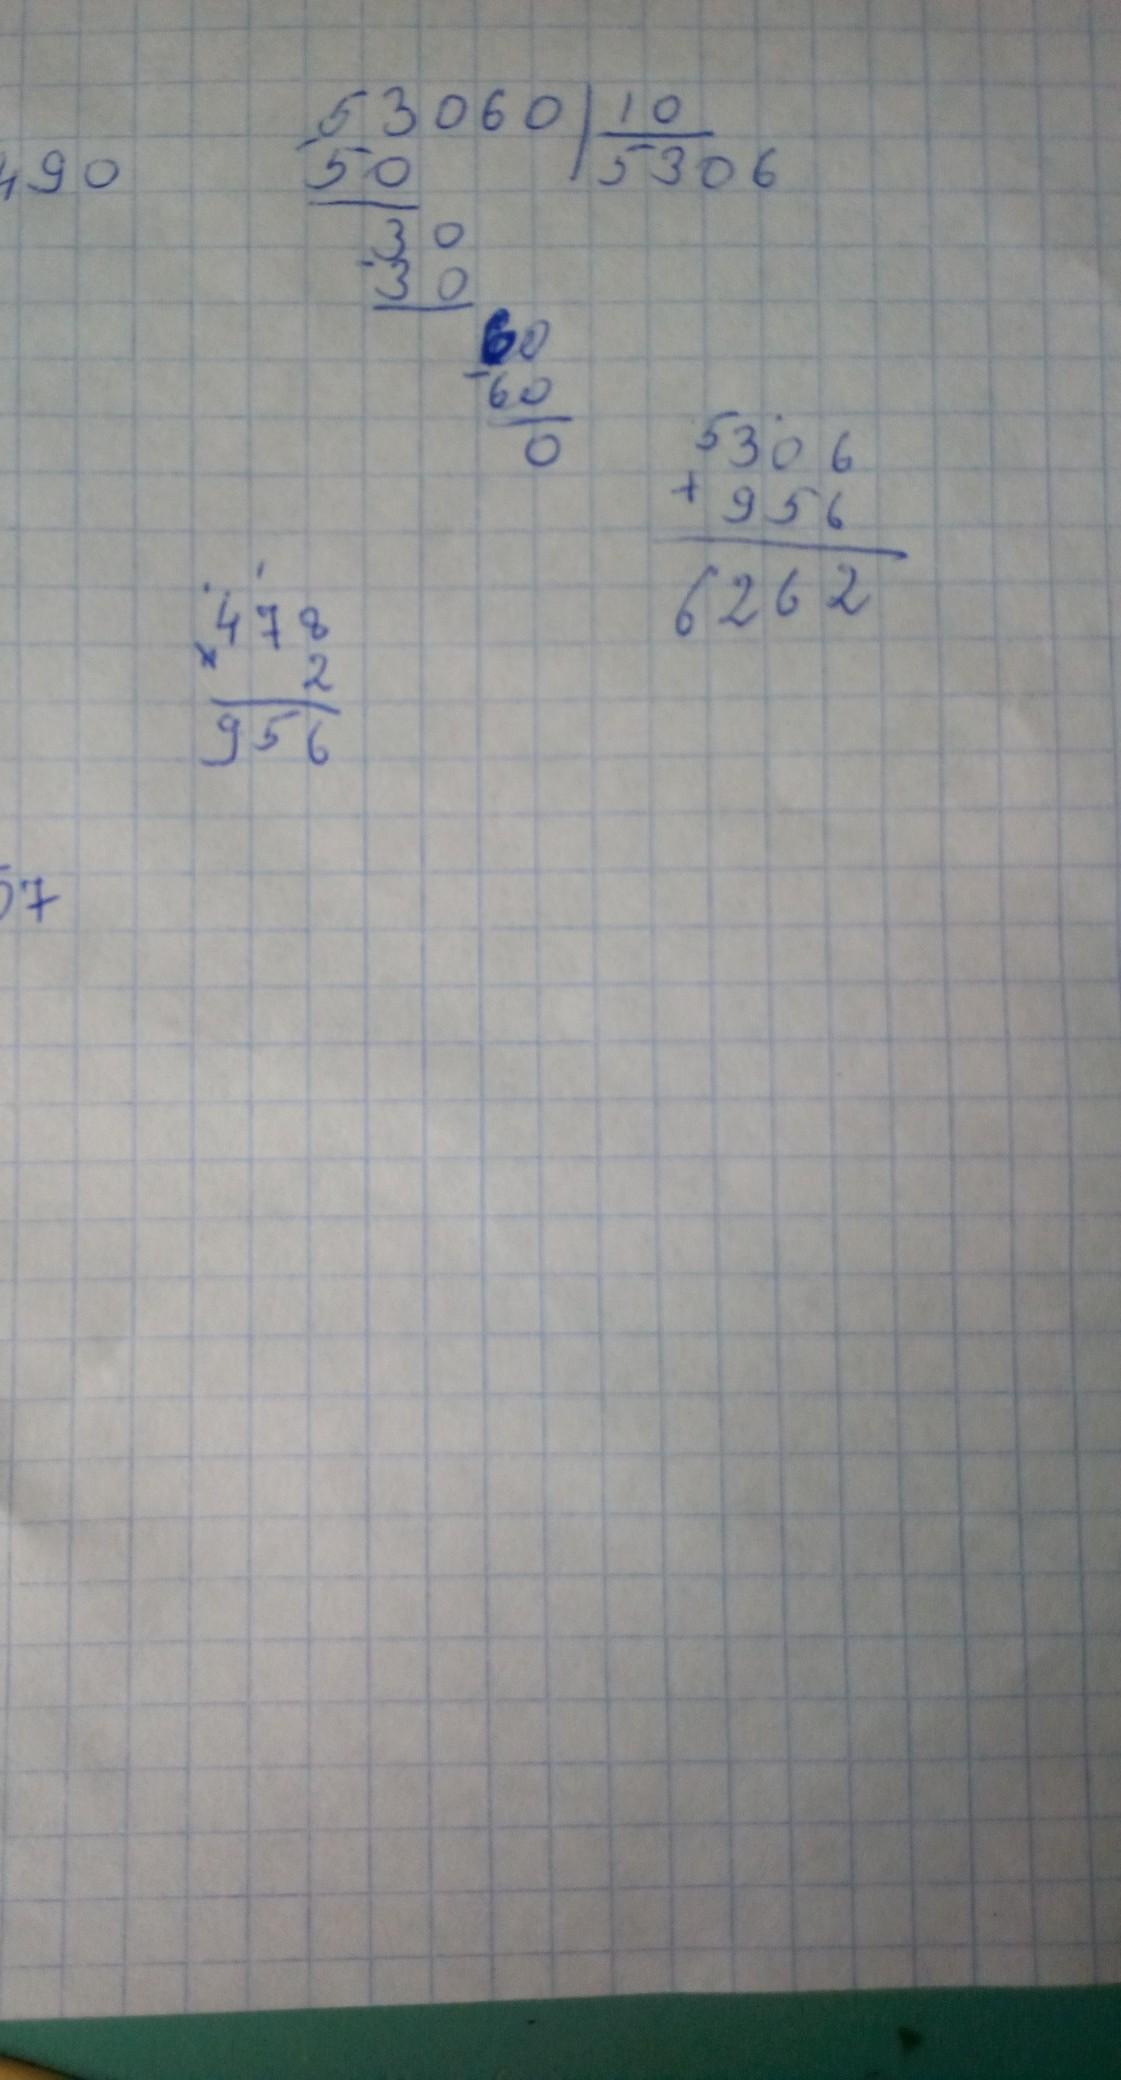 53060 | 10
490
50 | 5306
30
- 30
60
- 60
0
5306
+ 956
6262
478
× 2
956
57